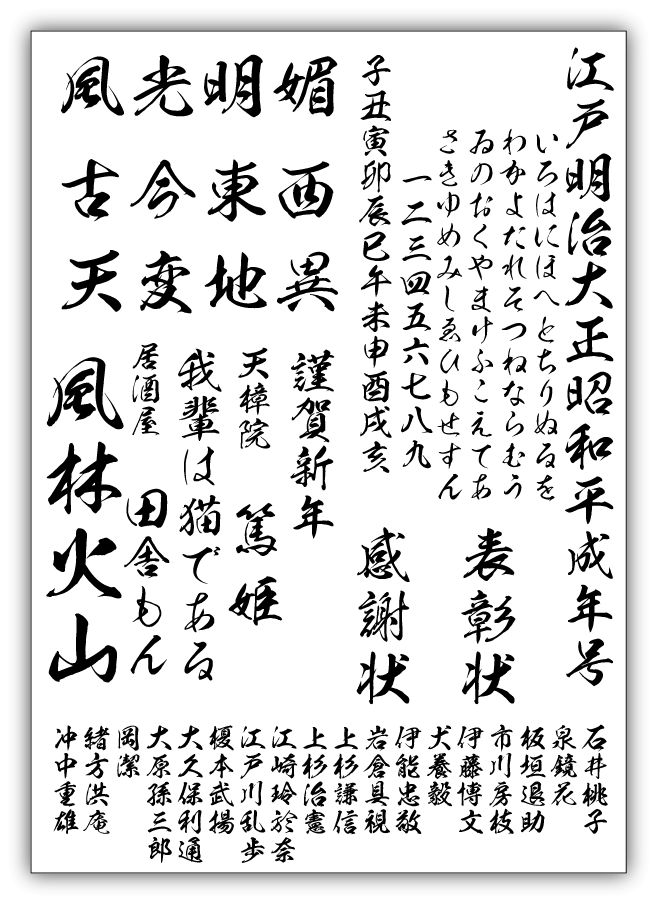 江戸明治大正昭和平成年号
いろはにほへとちりぬるを
わかよたれそつねならむう
ゐのおくやまけふこえてあ
さきゆめみしゑひもせすん
一二三四五六七八九
子丑寅卯辰巳午未申酉戌亥
表彰状
感謝状
媚西異
明東地
光今変
風古天
謹賀新年
天樟院
篤姫
我輩は猫である
居酒屋
田舎もん
風林火山
石井桃子
泉鏡花
板垣退助
市川房枝
伊藤博文
犬養毅
伊能忠敬
岩倉具視
上杉謙信
上杉治憲
江崎玲於奈
江戸川乱歩
榎本武揚
大久保利通
大原孫三郎
岡潔
緒方洪庵
冲中重雄